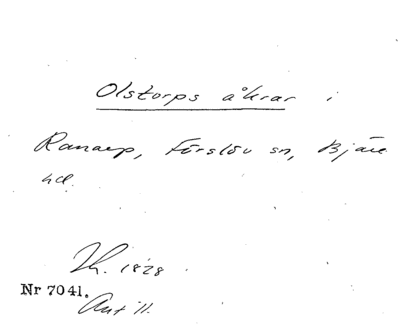 Olstorps åkrar i
Ranarp, Förslöv sn, Bjäre
hd.
Th. 1828
Nr 7041.
Ant 11.